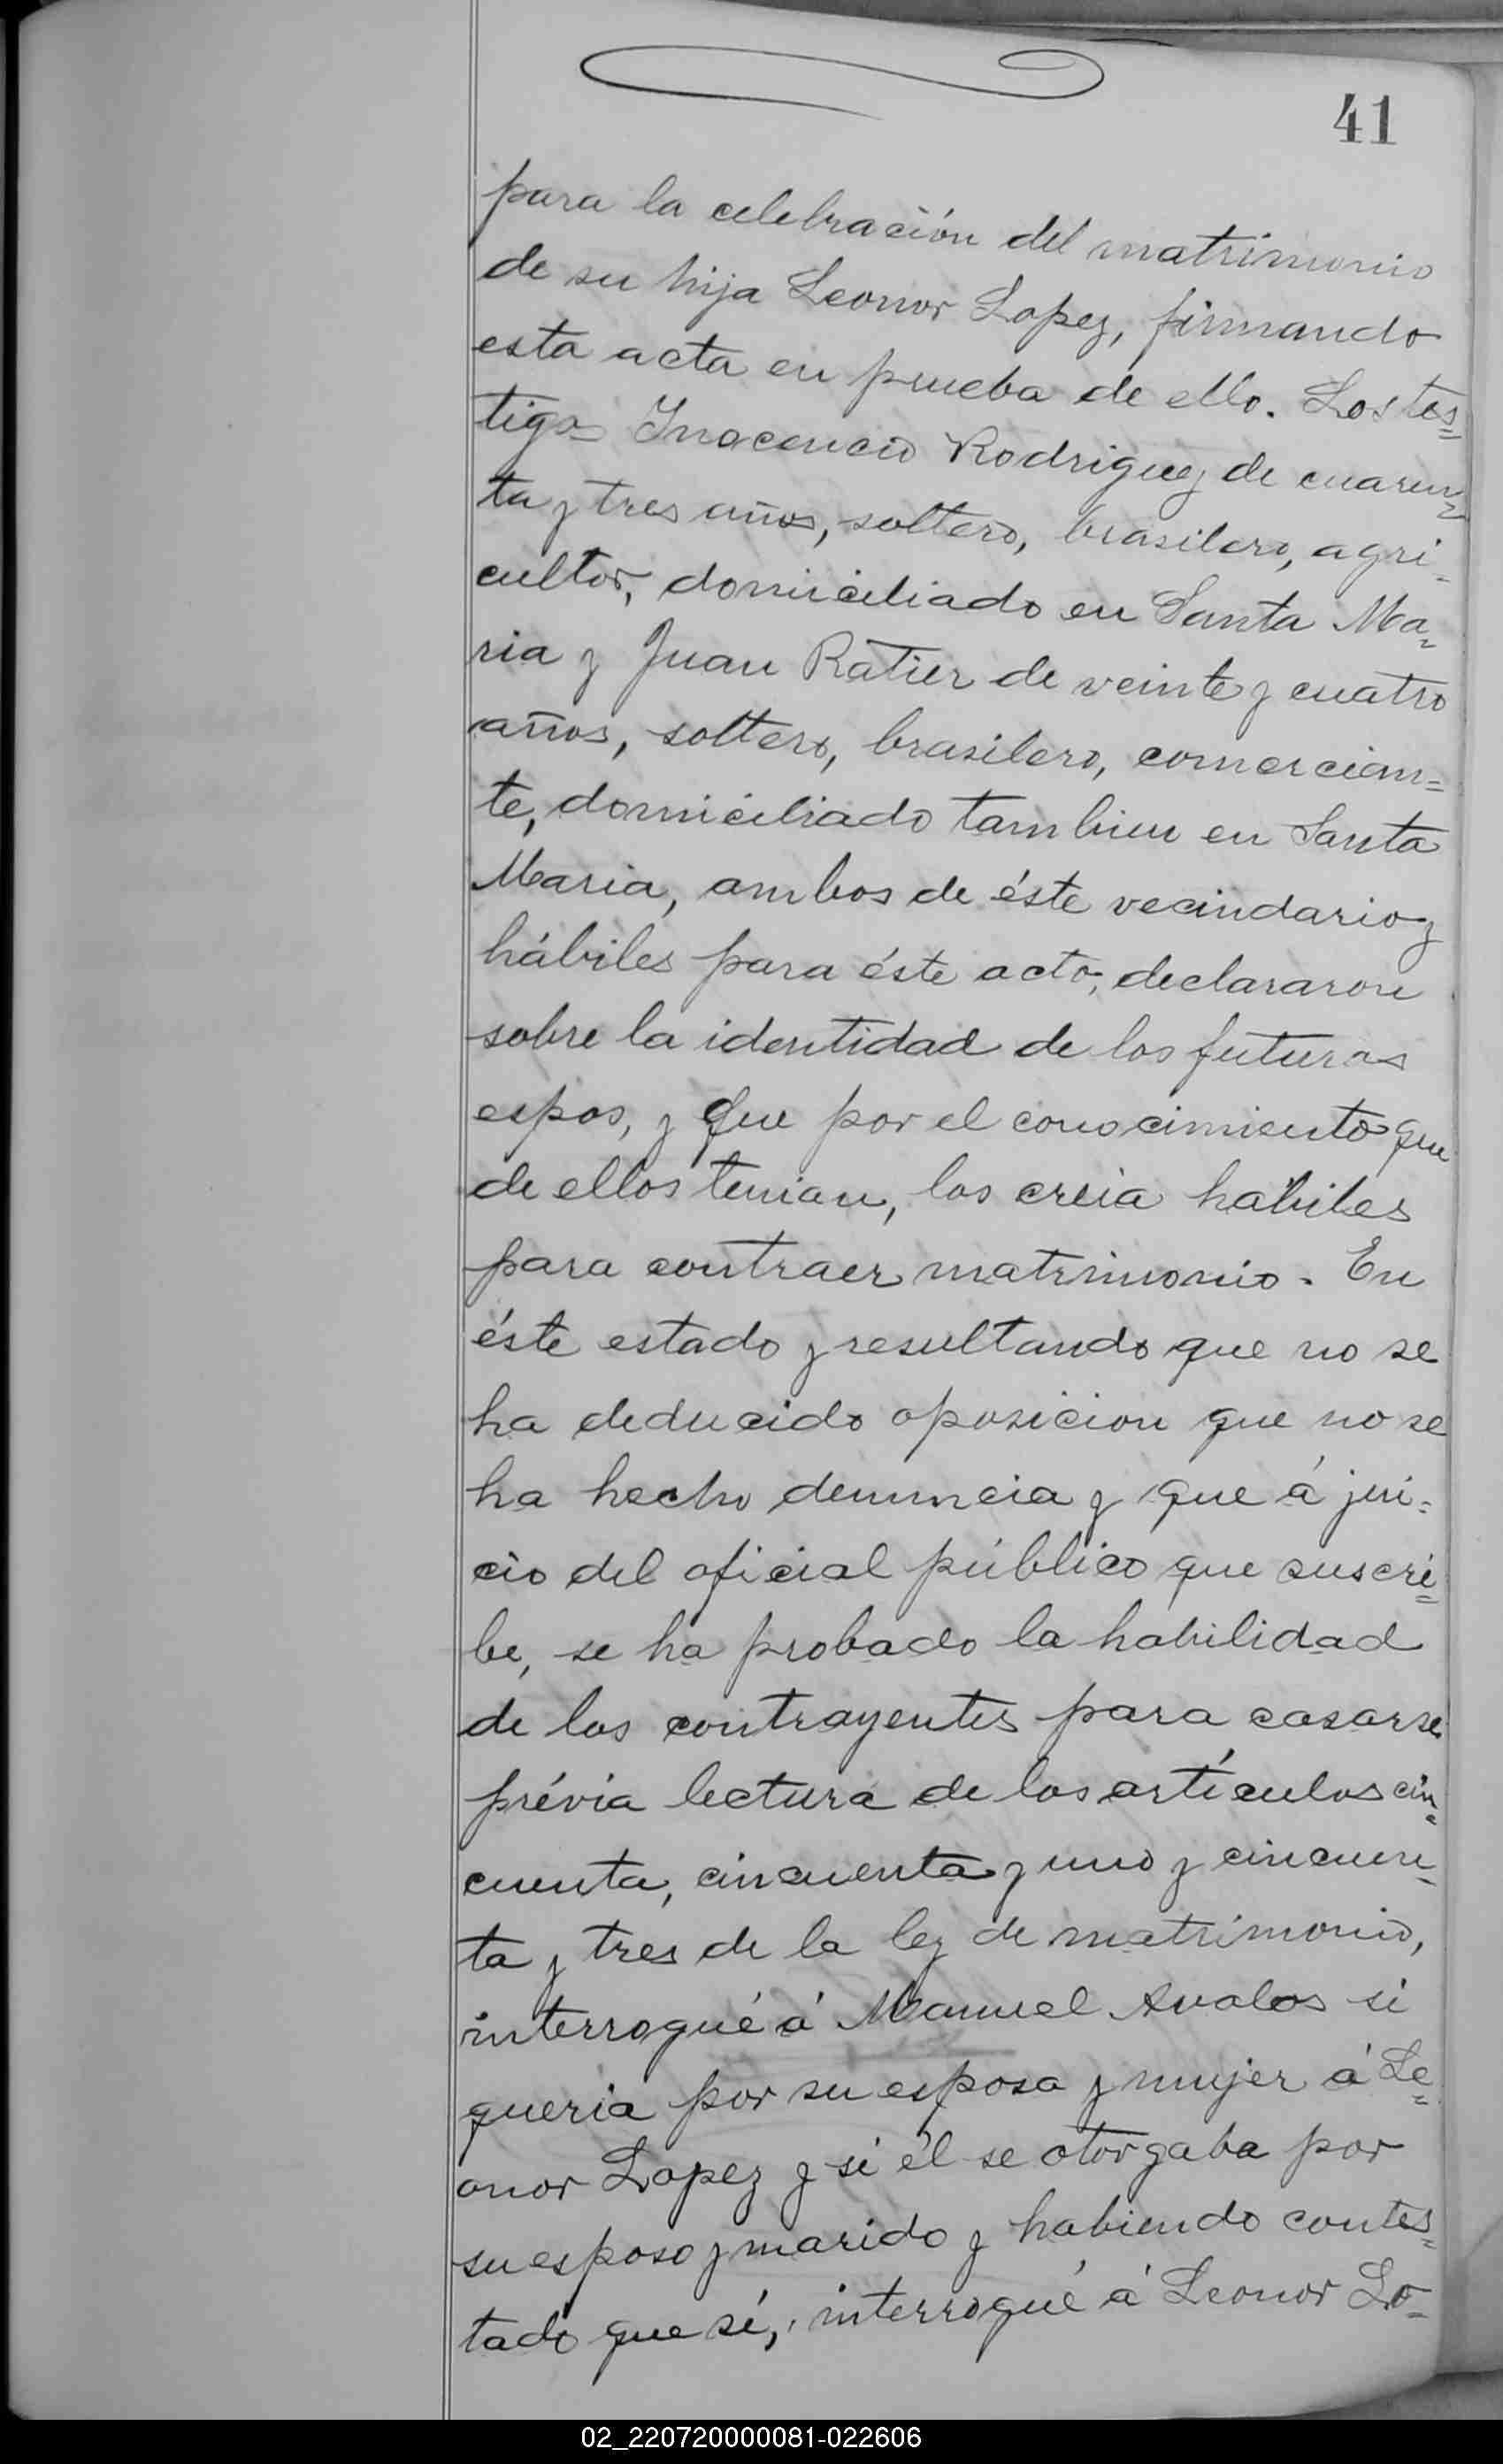 41
para la celebración del matrimonio
de su hija Leonor Lopez, firmando
esta acta en prueba de ello. Los tes=
tigos Inocencio Rodriguez de cuaren=
ta y tres años, soltero, brasilero, agri=
cultor, domiciliado en Santa Ma=
ria y Juan Ratier de veinte y cuatro
años, soltero, brasilero, comercian=
te, domiciliado tambien en Santa
Maria, ambos de éste vecindario y
hábiles para éste acto, declararon
sobre la identidad de los futuros
espos, y que por el conocimiento que
de ellos tenian, los creia hábiles
para contraer matrimonio. En
éste estado y resultando que no se
ha deducido oposicion que no se
ha hecho denuncia y que á jui=
cio del oficial público que suscri=
be, se ha probado la habilidad
de los contrayentes para casarse
prévia lectura de los artículos cin=
cuenta, cincuenta y uno y cincuen=
ta y tres de la ley de matrimonio,
interrogué á Manuel Avalos si
queria por su esposa y mujer á Le=
onor Lopez y si él se otorgaba por
su esposo y marido y habiendo contes=
tado que sí, interrogué á Leonor Lo=
02_220720000081-022606